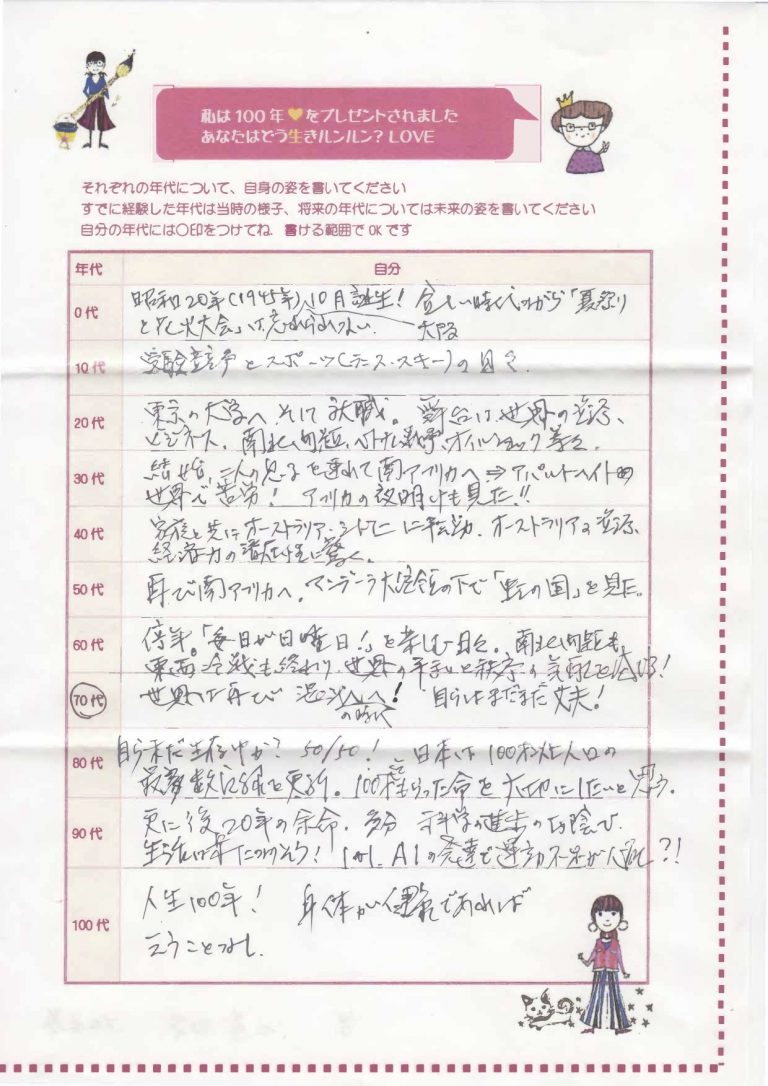 私は100年♥をプレゼントされました
あなたはどう生きルンルン? LOVE
それぞれの年代について、自身の姿を書いてください
すでに経験した年代は当時の様子、将来の年代については未来の姿を書いてください
自分の年代には〇印をつけてね 書ける範囲でOKです
年代 自分
0代 昭和20年(1945年)10月誕生! 貧しい時代ながら「夏祭り
と花火大会」は忘れられない. 大阪
10代 受験競争とスポーツ(テニス・スキー)の日々.
20代 東京の大学へ そして就職。舞台は世界の資源、
ビジネス. 南北問題、ベトナム戦争、オイルショック等々.
30代 結婚、二人の息子を連れて南アフリカへ⇒アパルトヘイトの
世界で苦労! アフリカの夜明けも見た!!
40代 家族と共にオーストラリア・シドニーに転勤. オーストラリアの資源、
経済力の潜在性に驚く。
50代 再び南アフリカへ。マンデーラ大統領の下で「虹の国」を見た。
60代 停年。「毎日が日曜日!」を楽しむ日々。南北問題も、
東西冷戦も終わり、世界の平和と秩序の気配を感ず!
70代 世界は再び混沌へ! 自らはまだまだ丈夫!
の時代
80代 自ら未だ生存中か? 50/50! 日本は100才以上人口の
最多数記録を更新。100年もらった命を大切にしたいと思う.
90代 更に後20年の余命. 多分 科学の進歩のお陰で、
生活は楽になりそう! しかし、AIの発達で運動不足が心配?!
100代 人生100年! 身体が健気であれば
云うことなし.